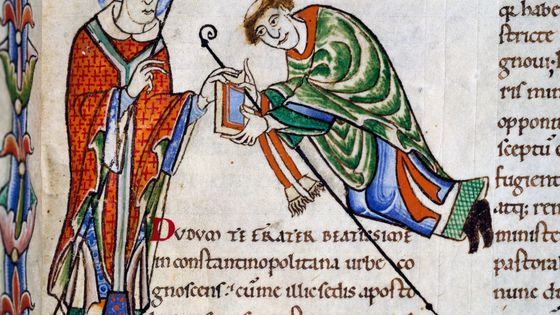 DUDUM TE FRATER BEATISSIME
in constantinopolitana urbe co
gnoscens; cū me illic sedis aposto
habe
stricte
gnoui;
ris min
opponi
sceptū
fugient
atq; re
ministe
pastora
nunc d